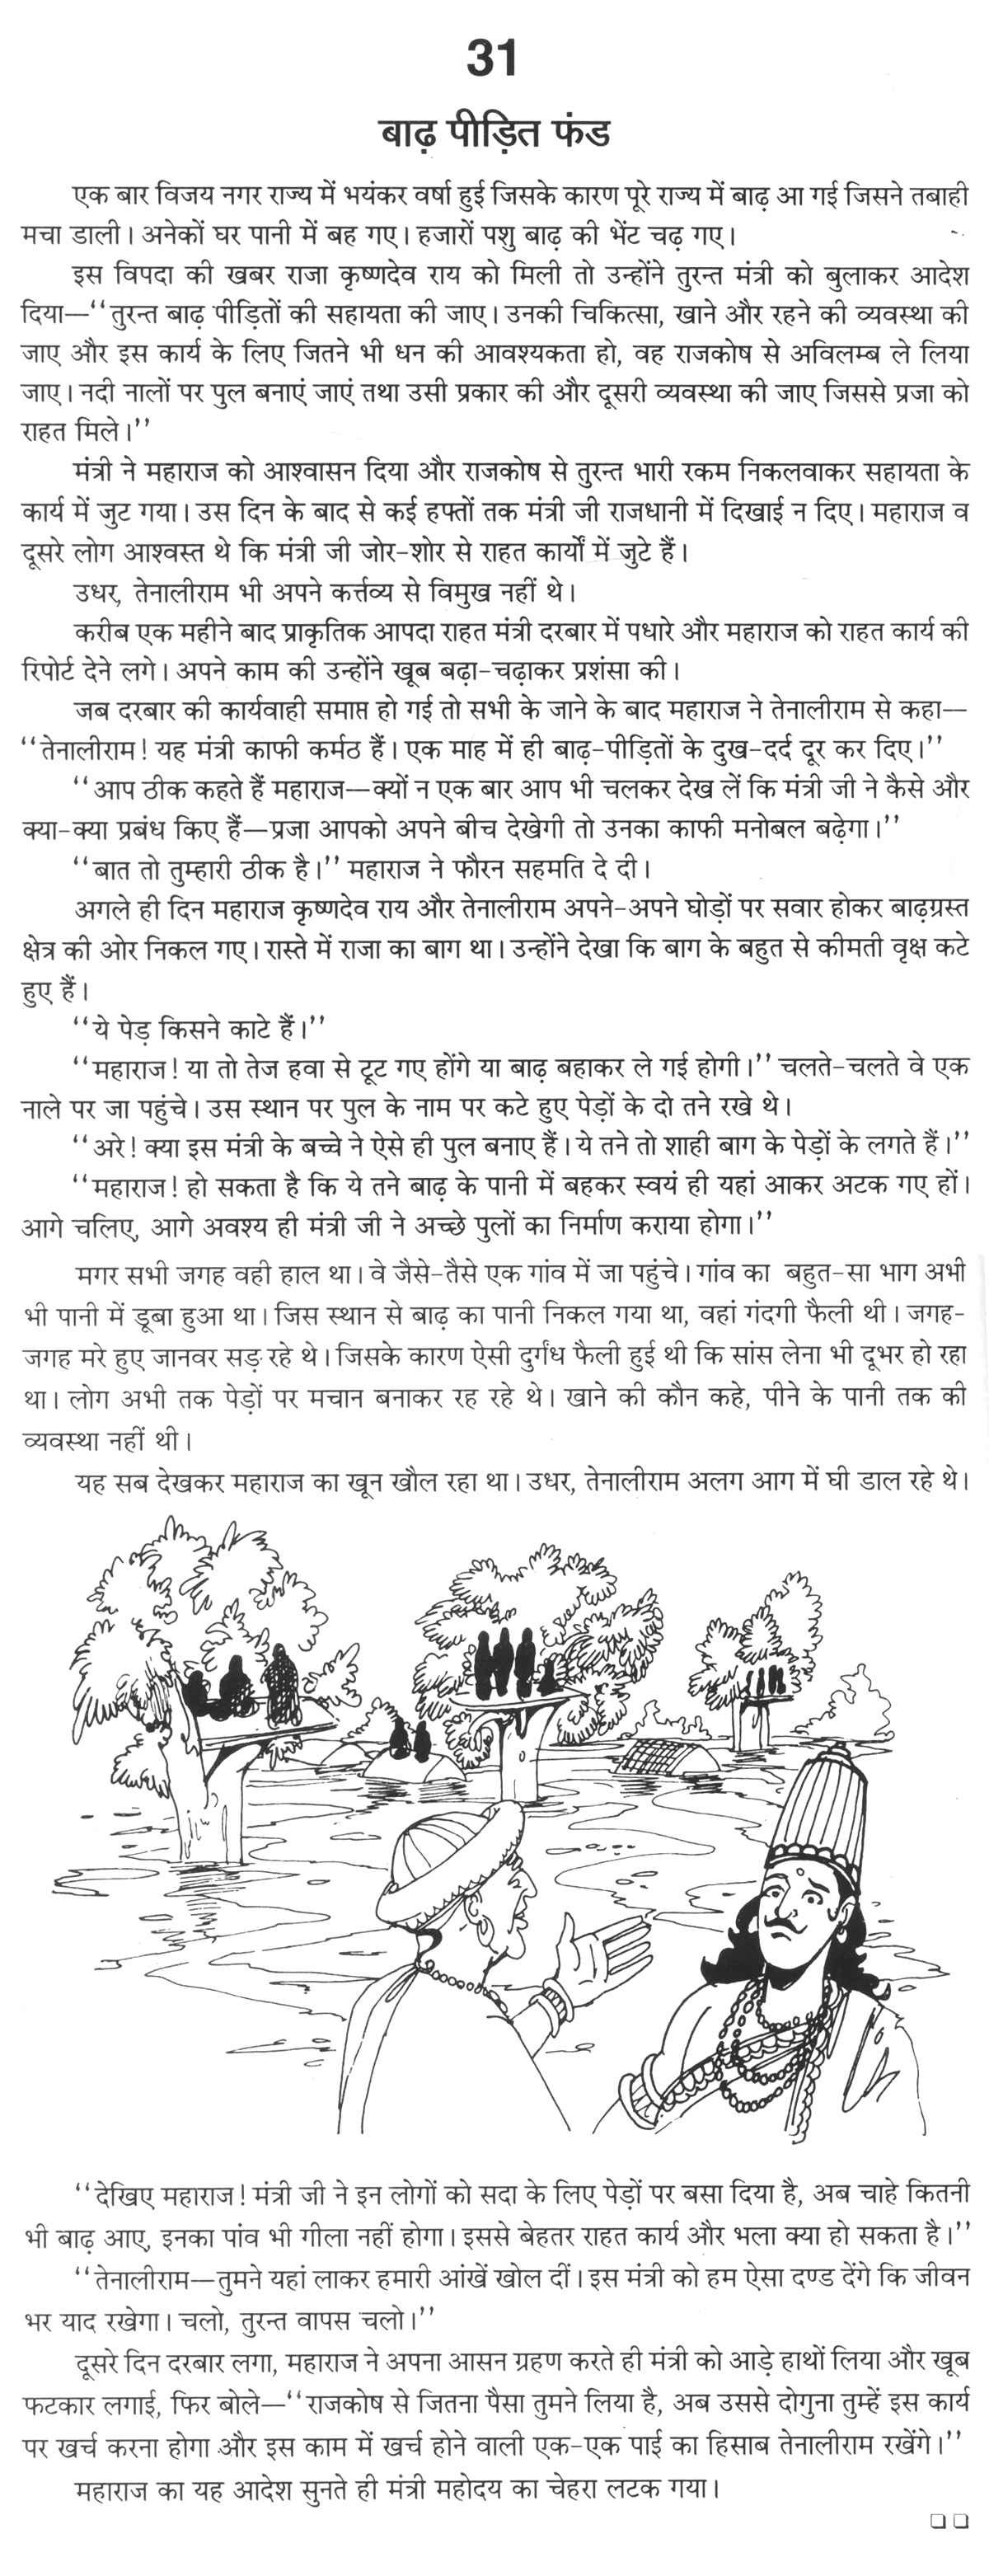 31
बाढ़ पीड़ित फंड
एक बार विजय नगर राज्य में भयंकर वर्षा हुई जिसके कारण पूरे राज्य में बाढ़ आ गई जिसने तबाही
मचा डाली। अनेकों घर पानी में बह गए। हजारों पशु बाढ़ की भेंट चढ़ गए।
इस विपदा की खबर राजा कृष्णदेव राय को मिली तो उन्होंने तुरन्त मंत्री को बुलाकर आदेश
दिया—‘‘तुरन्त बाढ़ पीड़ितों की सहायता की जाए। उनकी चिकित्सा, खाने और रहने की व्यवस्था की
जाए और इस कार्य के लिए जितने भी धन की आवश्यकता हो, वह राजकोष से अविलम्ब ले लिया
जाए। नदी नालों पर पुल बनाएं जाएं तथा उसी प्रकार की और दूसरी व्यवस्था की जाए जिससे प्रजा को
राहत मिले।’’
मंत्री ने महाराज को आश्वासन दिया और राजकोष से तुरन्त भारी रकम निकलवाकर सहायता के
कार्य में जुट गया। उस दिन के बाद से कई हफ्तों तक मंत्री जी राजधानी में दिखाई न दिए। महाराज व
दूसरे लोग आश्वस्त थे कि मंत्री जी जोर-शोर से राहत कार्यों में जुटे हैं।
उधर, तेनालीराम भी अपने कर्त्तव्य से विमुख नहीं थे।
करीब एक महीने बाद प्राकृतिक आपदा राहत मंत्री दरबार में पधारे और महाराज को राहत कार्य की
रिपोर्ट देने लगे। अपने काम की उन्होंने खूब बढ़ा-चढ़ाकर प्रशंसा की।
जब दरबार की कार्यवाही समाप्त हो गई तो सभी के जाने के बाद महाराज ने तेनालीराम से कहा—
‘‘तेनालीराम! यह मंत्री काफी कर्मठ हैं। एक माह में ही बाढ़-पीड़ितों के दुख-दर्द दूर कर दिए।’’
‘‘आप ठीक कहते हैं महाराज—क्यों न एक बार आप भी चलकर देख लें कि मंत्री जी ने कैसे और
क्या-क्या प्रबंध किए हैं—प्रजा आपको अपने बीच देखेगी तो उनका काफी मनोबल बढ़ेगा।’’
‘‘बात तो तुम्हारी ठीक है।’’ महाराज ने फौरन सहमति दे दी।
अगले ही दिन महाराज कृष्णदेव राय और तेनालीराम अपने-अपने घोड़ों पर सवार होकर बाढ़ग्रस्त
क्षेत्र की ओर निकल गए। रास्ते में राजा का बाग था। उन्होंने देखा कि बाग के बहुत से कीमती वृक्ष कटे
हुए हैं।
‘‘ये पेड़ किसने काटे हैं।’’
‘‘महाराज! या तो तेज हवा से टूट गए होंगे या बाढ़ बहाकर ले गई होगी।’’ चलते-चलते वे एक
नाले पर जा पहुंचे। उस स्थान पर पुल के नाम पर कटे हुए पेड़ों के दो तने रखे थे।
‘‘अरे! क्या इस मंत्री के बच्चे ने ऐसे ही पुल बनाए हैं। ये तने तो शाही बाग के पेड़ों के लगते हैं।’’
‘‘महाराज! हो सकता है कि ये तने बाढ़ के पानी में बहकर स्वयं ही यहां आकर अटक गए हों।
आगे चलिए, आगे अवश्य ही मंत्री जी ने अच्छे पुलों का निर्माण कराया होगा।’’
मगर सभी जगह वही हाल था। वे जैसे-तैसे एक गांव में जा पहुंचे। गांव का बहुत-सा भाग अभी
भी पानी में डूबा हुआ था। जिस स्थान से बाढ़ का पानी निकल गया था, वहां गंदगी फैली थी। जगह-
जगह मरे हुए जानवर सड़ रहे थे। जिसके कारण ऐसी दुर्गंध फैली हुई थी कि सांस लेना भी दूभर हो रहा
था। लोग अभी तक पेड़ों पर मचान बनाकर रह रहे थे। खाने की कौन कहे, पीने के पानी तक की
व्यवस्था नहीं थी।
यह सब देखकर महाराज का खून खौल रहा था। उधर, तेनालीराम अलग आग में घी डाल रहे थे।
‘‘देखिए महाराज! मंत्री जी ने इन लोगों को सदा के लिए पेड़ों पर बसा दिया है, अब चाहे कितनी
भी बाढ़ आए, इनका पांव भी गीला नहीं होगा। इससे बेहतर राहत कार्य और भला क्या हो सकता है।’’
‘‘तेनालीराम—तुमने यहां लाकर हमारी आंखें खोल दीं। इस मंत्री को हम ऐसा दण्ड देंगे कि जीवन
भर याद रखेगा। चलो, तुरन्त वापस चलो।’’
दूसरे दिन दरबार लगा, महाराज ने अपना आसन ग्रहण करते ही मंत्री को आड़े हाथों लिया और खूब
फटकार लगाई, फिर बोले—‘‘राजकोष से जितना पैसा तुमने लिया है, अब उससे दोगुना तुम्हें इस कार्य
पर खर्च करना होगा और इस काम में खर्च होने वाली एक-एक पाई का हिसाब तेनालीराम रखेंगे।’’
महाराज का यह आदेश सुनते ही मंत्री महोदय का चेहरा लटक गया।